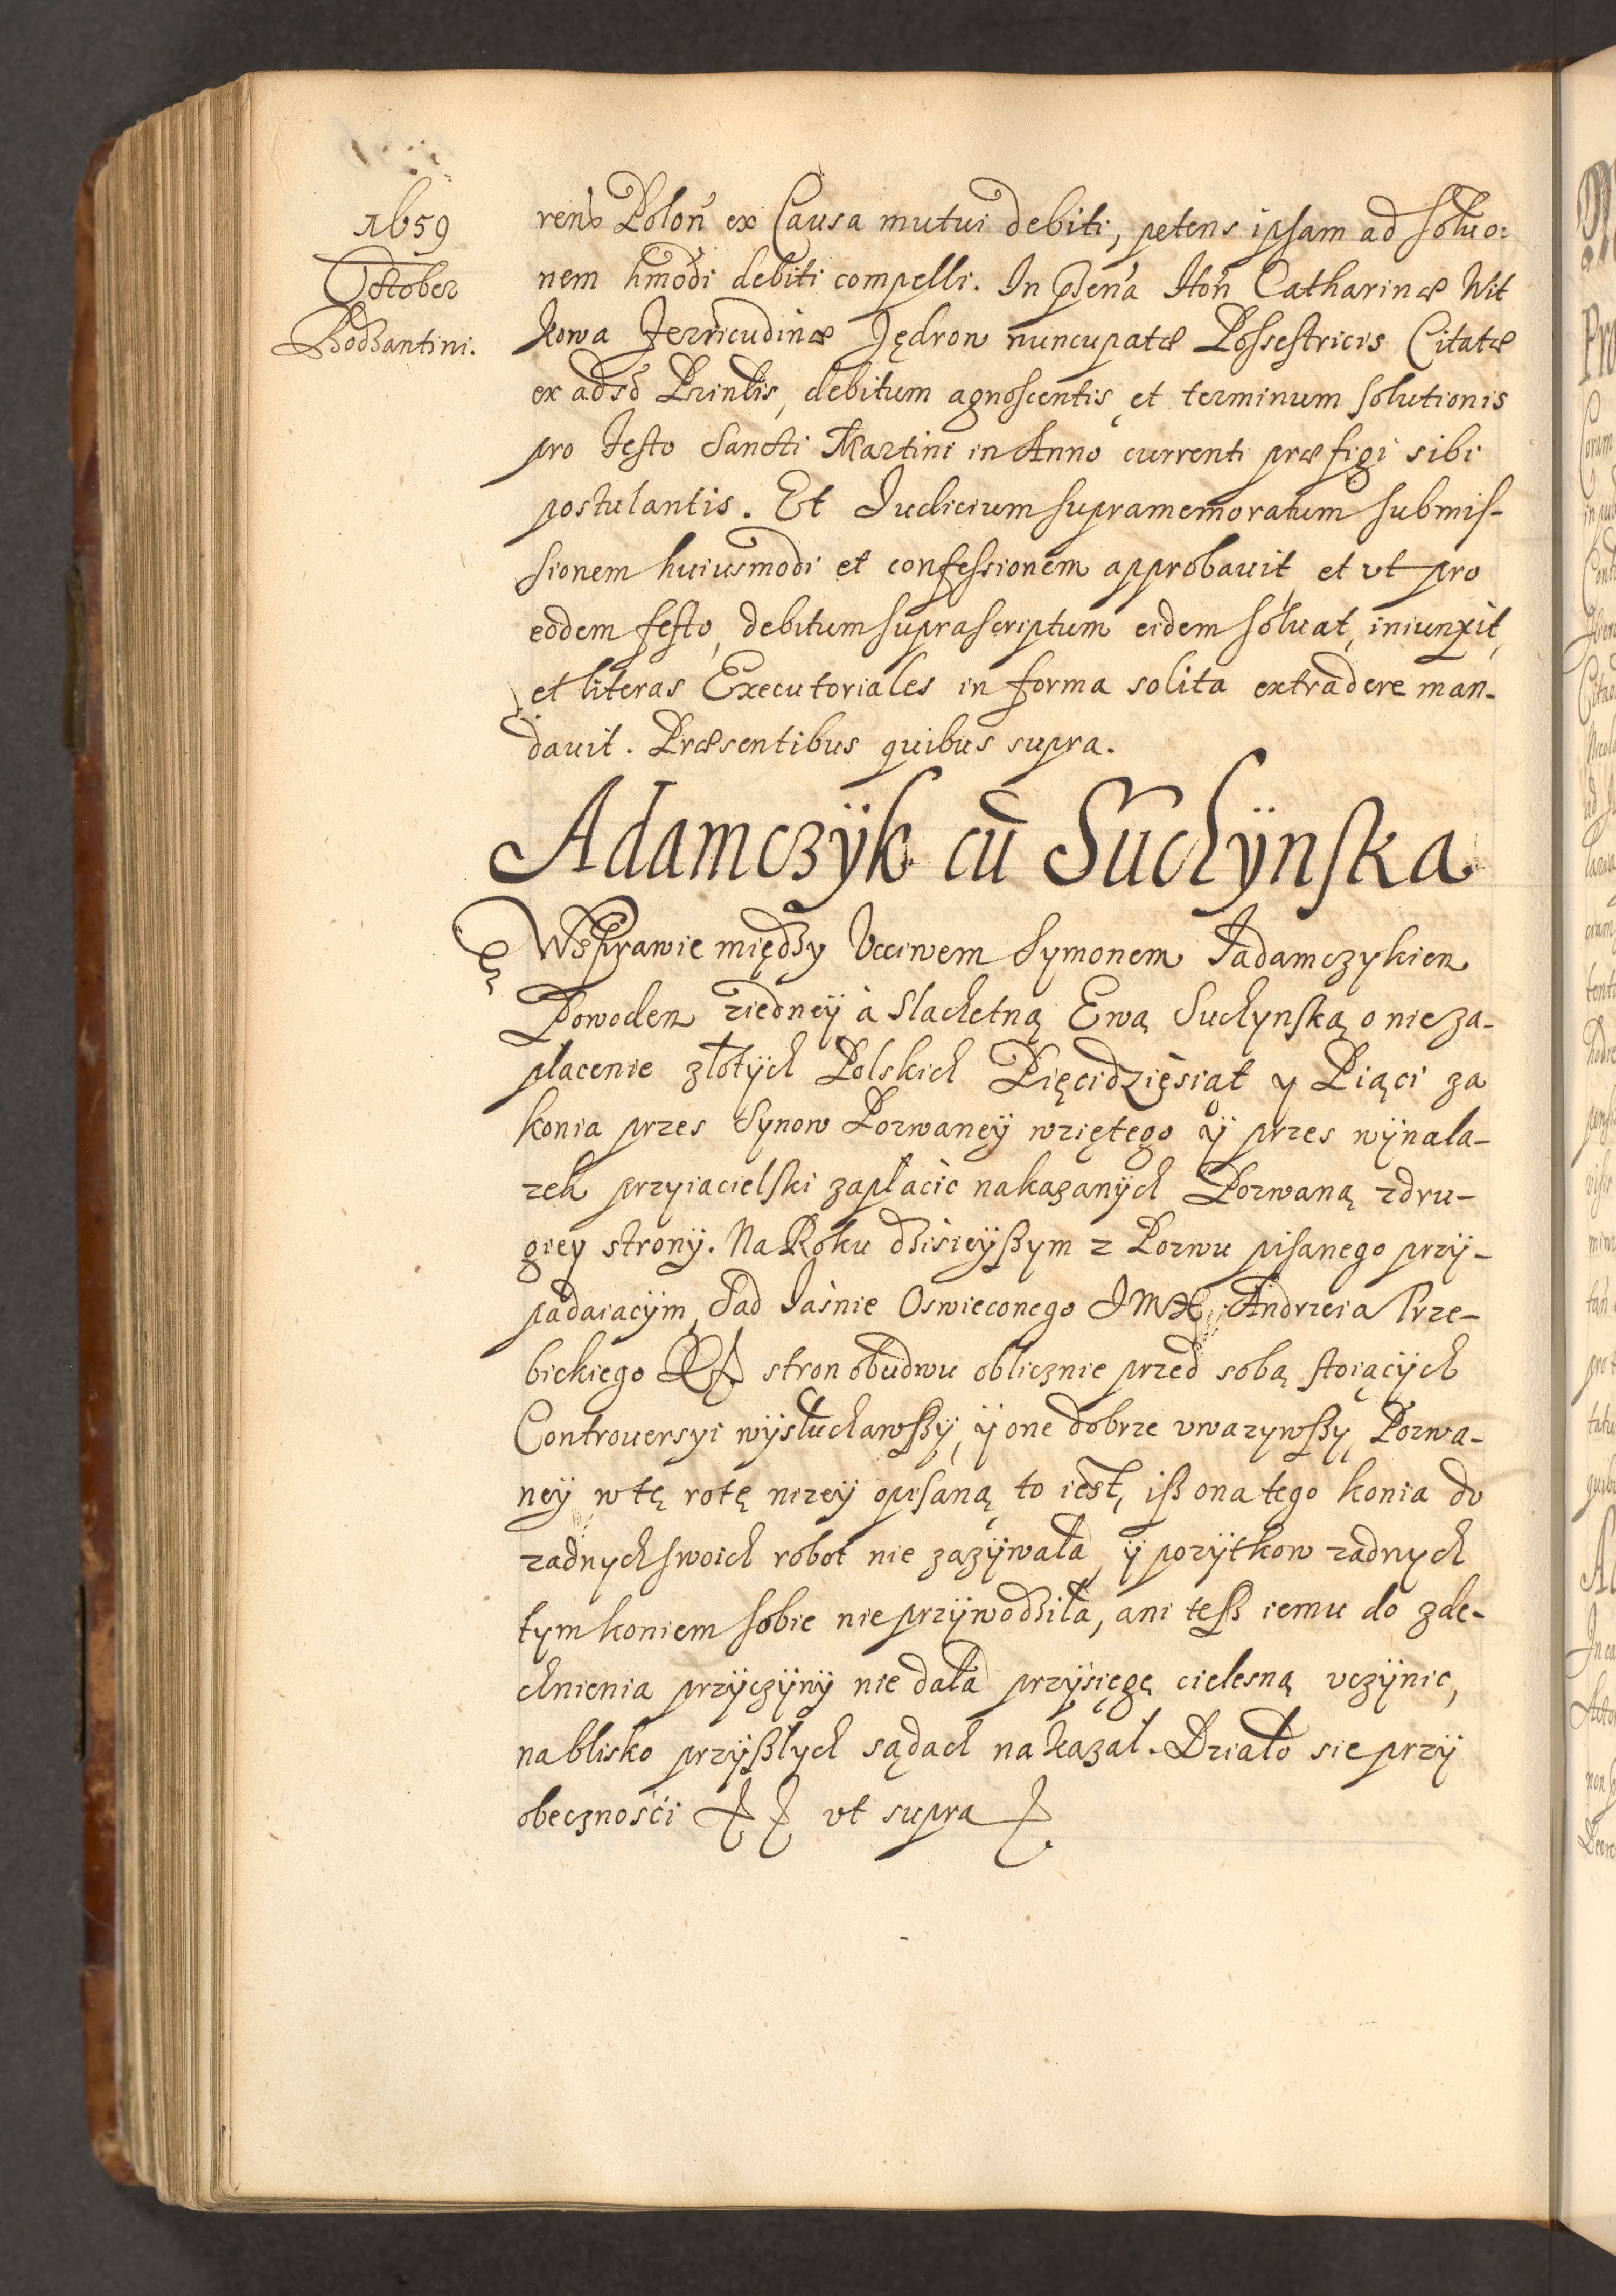 1659
October
Bodzantini.
renõ Poloñ ex Causa mutui debiti, petens ipsam ad soluo:
nem hmõdi debiti compelli. In pñsena Hoñ Catharinæ Wit
kowa Jędron nuncupatæ Possestricis Citatæ
ex adsõ Prinlis, debitum agnoscentis, et terminum solutionis
pro festo Sancti Martini in Anno currenti præfigi sibi
postulantis. Et Iudicium supramemoratum submis-
sionem huiusmodi et confessionem approbauit et vt pro
eodem festo, debitum suprascriptum eidem soluat, iniunxit,
et literas Executoriales in forma solita extradere man-
dauit. Præsentibus quibus supra.
Adamczÿk cũ Suchÿnska
W sprawie między Vcciwem Symonem Jadamczykiem
Powodem ziedneÿ à Slachetną Ewą Suchynską o nieza-
płacenie złotÿch Polskich Pięcidzięsiąt y Piąci za
konia przes Synow Pozwaneÿ wziętego ÿ przes wÿnala-
zek przyiacielski zapłacić nakazanÿch Pozwaną zdru-
giey stronÿ. Na Roku dzisieÿszym z Pozwu pisanego przÿ-
padaiacÿm, Sad Jaśnie Oswieconego JMX Andrzeia Trze-
bickiego stron obudwu oblicznie przed sobą stoiącÿch
Controuersyi wÿsłuchawszÿ, ÿ one dobrze vwazywszy Pozwa-
neÿ w tę rotę nizeÿ opisaną to iest, isz ona tego konia do
zadnych swoich robot nie zazÿwała, ÿ pozÿtkow zadnych
tym koniem sobie nie przÿwodziła, ani tesz iemu do zde-
chnienia przÿczÿnÿ nie dała przÿsięgę cielesną vczÿnic,
na blisko przÿszłych sądach nakazał. Działo sie przÿ
obecznosći vt supra